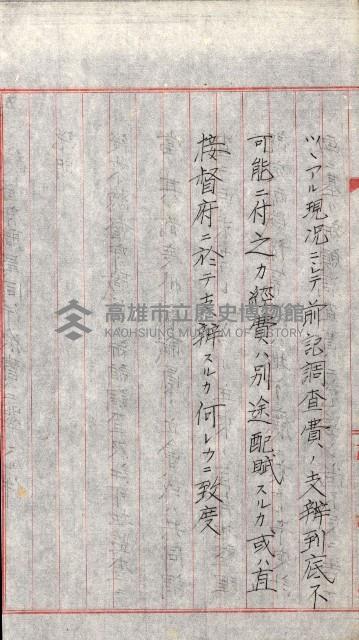 ツヽアル現況ニシテ前記調査費ノ支辨到底不
可能ニ付之カ經費ハ別途配賦スルカ或ハ直
接督府ニ於テ支辨スルカ何レカニ致度
高雄市立歷史博物館
KAOHSIUNG MUSEUM OF HISTORY